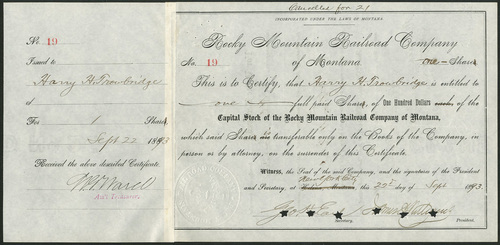 Cancelled for 21
INCORPORATED UNDER THE LAWS OF MONTANA.
No. 19
Issued to
Harry H. Trowbridge
of
For 1 Share
Sept 22 1893
Received the above described Certificate.
Rocky Mountain Railroad Company
No. 19 of Montana. one Share
This is to Certify, that Harry H. Trowbridge is entitled to
one full paid Share, of One Hundred Dollars each, of the
Capital Stock of the Rocky Mountain Railroad Company of Montana,
which said Share is transferable only on the Books of the Company, in
person or by attorney, on the surrender of this Certificate.
Witness, the Seal of the said Company, and the signatures of the President
New York City
and Secretary, at Helena, Montana this 22d day of Sept 1893.
Secretary. President.